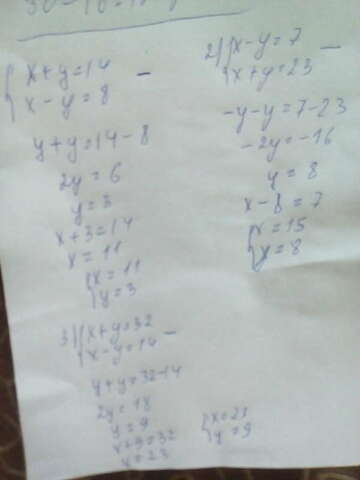 { x+y=14
x-y=8 -
y+y=14-8
2y=6
y=3
x+3=14
x=11
{ x=11
y=3
2) { x-y=7
x+y=23 -
-y-y=7-23
-2y=-16
y=8
x-8=7
{ x=15
x=8
3) { x+y=32
x-y=14 -
y+y=32-14
2y=18
y=9
x+9=32
x=23
{ x=23
y=9